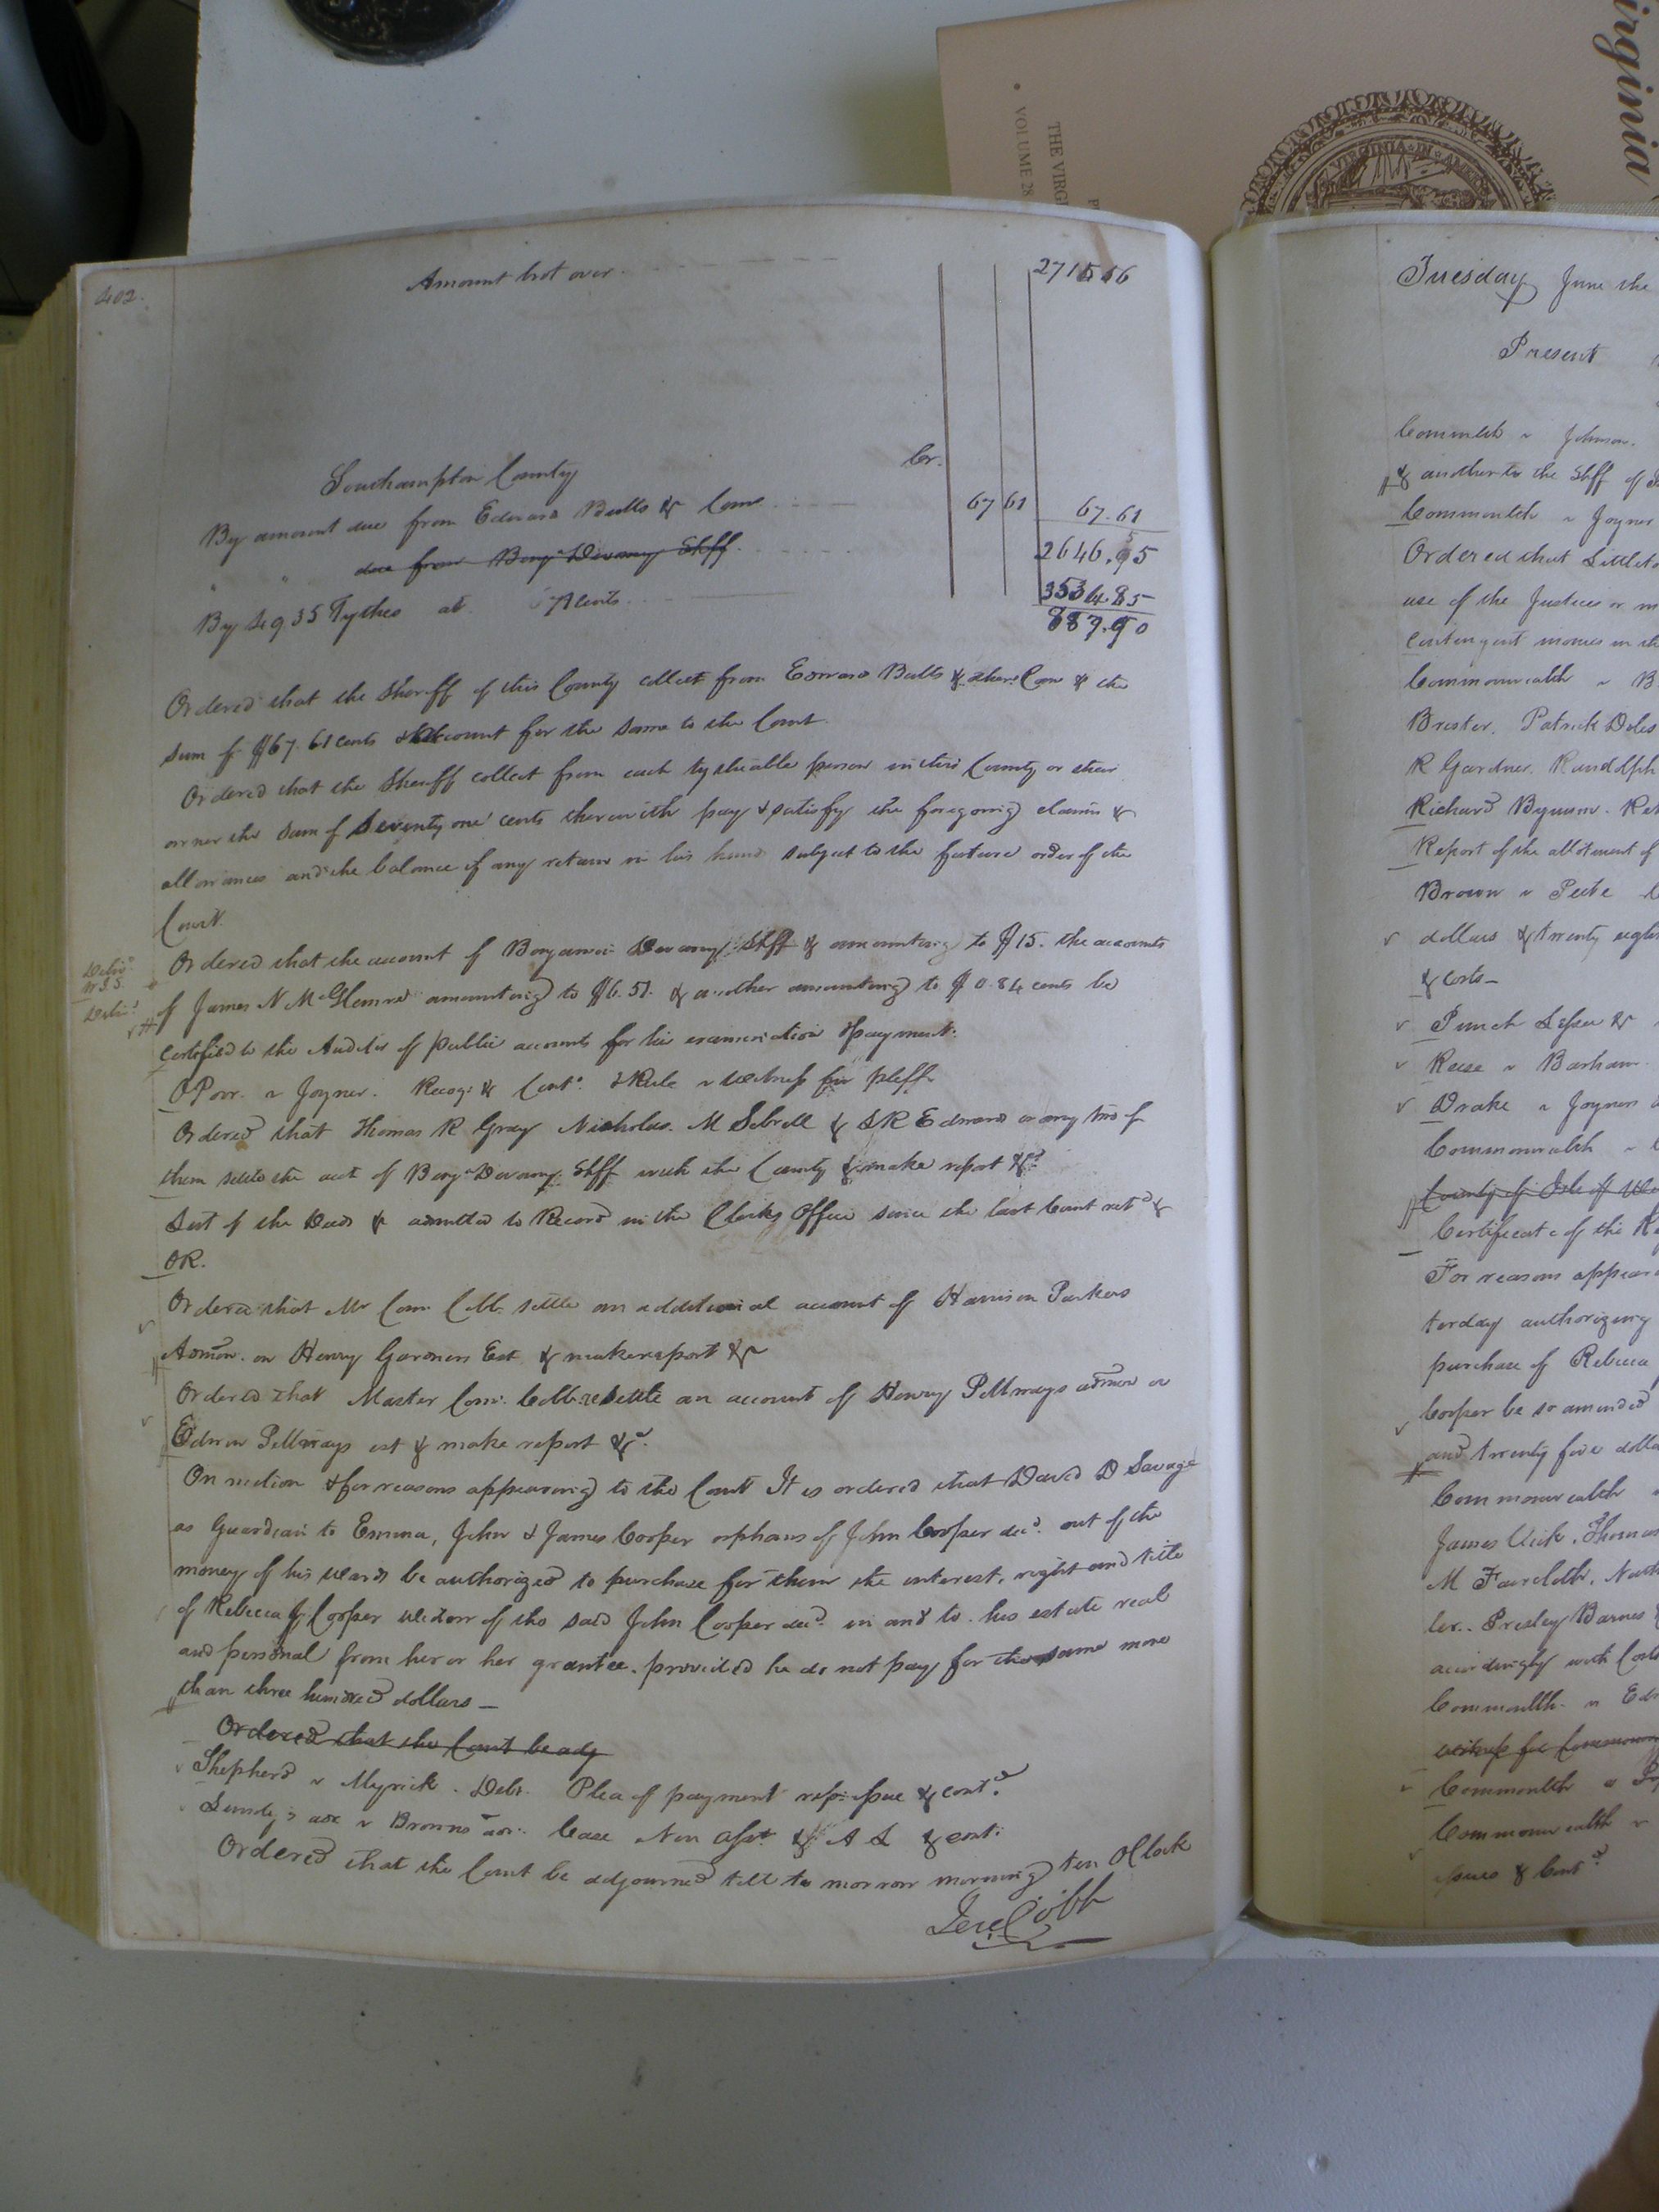 irginia
THE VIRGI
VOLUME 28
VIRGINIA IN AMER
402.
Amount brot over. 2715 56
Southampton County Cr.
By amount due from Edward Butts & Com 67 61 67.61
" " due from Benj Devany Shff. 2646.95
By 4935 Tythes at 71 cents 3504.85
887.90
Ordered that the Sheriff of this County collect from Edward Butts & others Com & the
sum of $67.61 cents & account for the same to the Court.
Ordered that the Sheriff collect from each tythable person in this County or their
owner the sum of Seventy one cents therewith pay & satisfy the foregoing claims &
allowances and the balance if any retain in his hands subject to the future order of the
Court.
Ordered that the account of Benjamin Devany Shff & amounting to $15. the accounts
of James N McGlemre amounting to $6.51. & another amounting to $0.84 cents be
certified to the Auditor of public accounts for his examination & payment.
v Joyner. Recog: & Cont.d & Rule v Witness for pltff
Ordered that Thomas R Gray Nicholas M Sebrell & S R Edwards or any two of
them settle the acct of Benj Devany Shff with the County & make report &c
List of the Deeds & admitted to Record in the Clerks Office since the last Court ret.d &
OR.
Ordered that Mr Com Cobb settle an additional account of Harrison Parkers
Admōn. on Henry Gardners Est & make report &c
Ordered that Master Com. Cobb settle an account of Henry Pettways admōn on
Edwin Pettways est & make report &c.
On motion & for reasons appearing to the Court It is ordered that David D Savage
as Guardian to Emma, John & James Cooper orphans of John Cooper dec.d out of the
money of his wards be authorized to purchase for them the interest, right and title
of Rebecca J Cooper widow of the said John Cooper dec.d in and to his estate real
and personal from her or her grantee. provided he do not pay for the same more
than three hundred dollars —
Ordered that the Court be adj
Shepherd v Myrick. Debt. Plea of payment rep: issue & cont.d
v Browns Case Non Ass.t & A L & cont:
Ordered that the Court be adjourned till to morrow morning ten OClock
Jere Cobb
Tuesday June the
Present
Commlth v Johnson.
& another to the Shff of
Commonlth v Joyner
Ordered that Littleto
use of the Justices or
Contingent monies in
Commonwealth v B
Brister. Patrick Doles
R Gardner. Randolph
Richard Bynum. Ret
Report of the allotment of
Brown v Pete
dollars & twenty eight
& costs —
Punch Lessee &
Reese v Barham.
Drake v Joyner
Commonwealth v
County of Isle of
Certificate of the
For reasons appear
terday authorizing
purchase of Rebecca
Cooper be so amended
and twenty five dolla
Commonwealth
James Vick. Thomas
M Faircloth. Nath
ler.. Presley Barnes
accordingly with Costs
Commonlth. v Ed
witness for Commonw
Commonlth v
Commonwealth v
issues & Cont.d